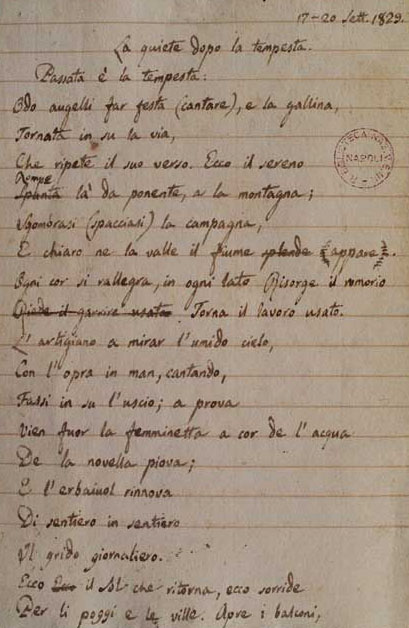 17-20 Sett. 1829.
La quiete dopo la tempesta.
Passata è la tempesta:
Odo augelli far festa (cantare), e la gallina,
Tornata in su la via,
Che ripete il suo verso. Ecco il sereno
Rompe
Spunta là da ponente, a la montagna;
Sgombrasi (spacciasi) la campagna,
E chiaro ne la valle il fiume splende (appare).
Ogni cor si rallegra, in ogni lato Risorge il romorio
Riede il garrire usato Torna il lavoro usato.
L'artigiano a mirar l'umido cielo,
Con l'opra in man, cantando,
Fassi in su l'uscio; a prova
Vien fuor la femminetta a cor de l'acqua
De la novella piova;
E l'erbaiuol rinnova
Di sentiero in sentiero
Il grido giornaliero.
Ecco Ecco il Sol che ritorna, ecco sorride
Per li poggi e le ville. Apre i balconi,
NAPOLI